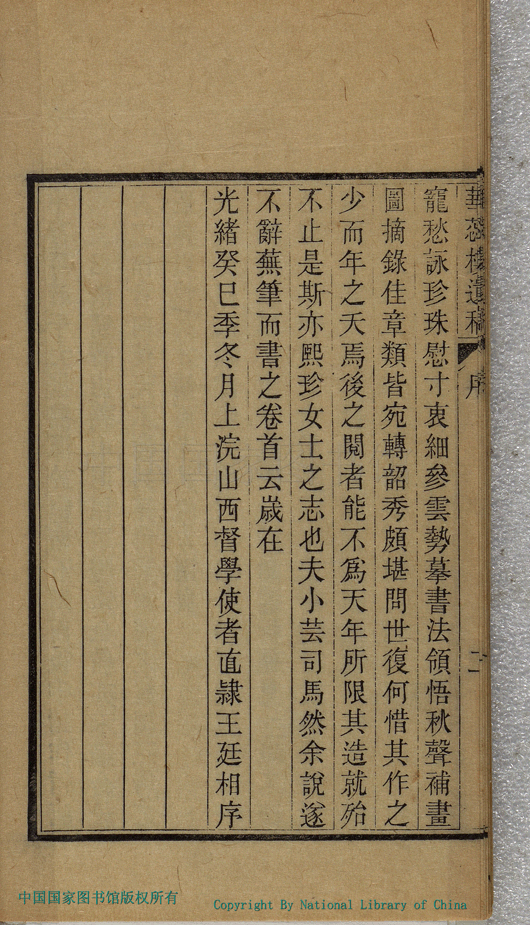 華愁樓遺稿 序 二
寵愁詠珍珠慰寸衷細參雲勢摹書法領悟秋聲補畫
圖摘錄佳章類皆宛轉韶秀頗堪問世復何惜其作之
少而年之夭焉後之閱者能不為天年所限其造就殆
不止是斯亦熙珍女士之志也夫小芸司馬然余說遂
不辭蕪筆而書之卷首云歲在
光緒癸巳季冬月上浣山西督學使者直隸王廷相序
中国国家图书馆版权所有
Copyright By National Library of China